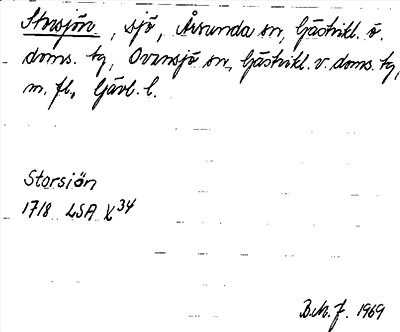 Storsjön, sjö, Årsunda sn, Gästrikl. ö.
doms. tg, Ovansjö sn, Gästrikl. v. doms. tg,
m. fl., Gävl. l.
Storsiön
1718 LSA X 34
1969